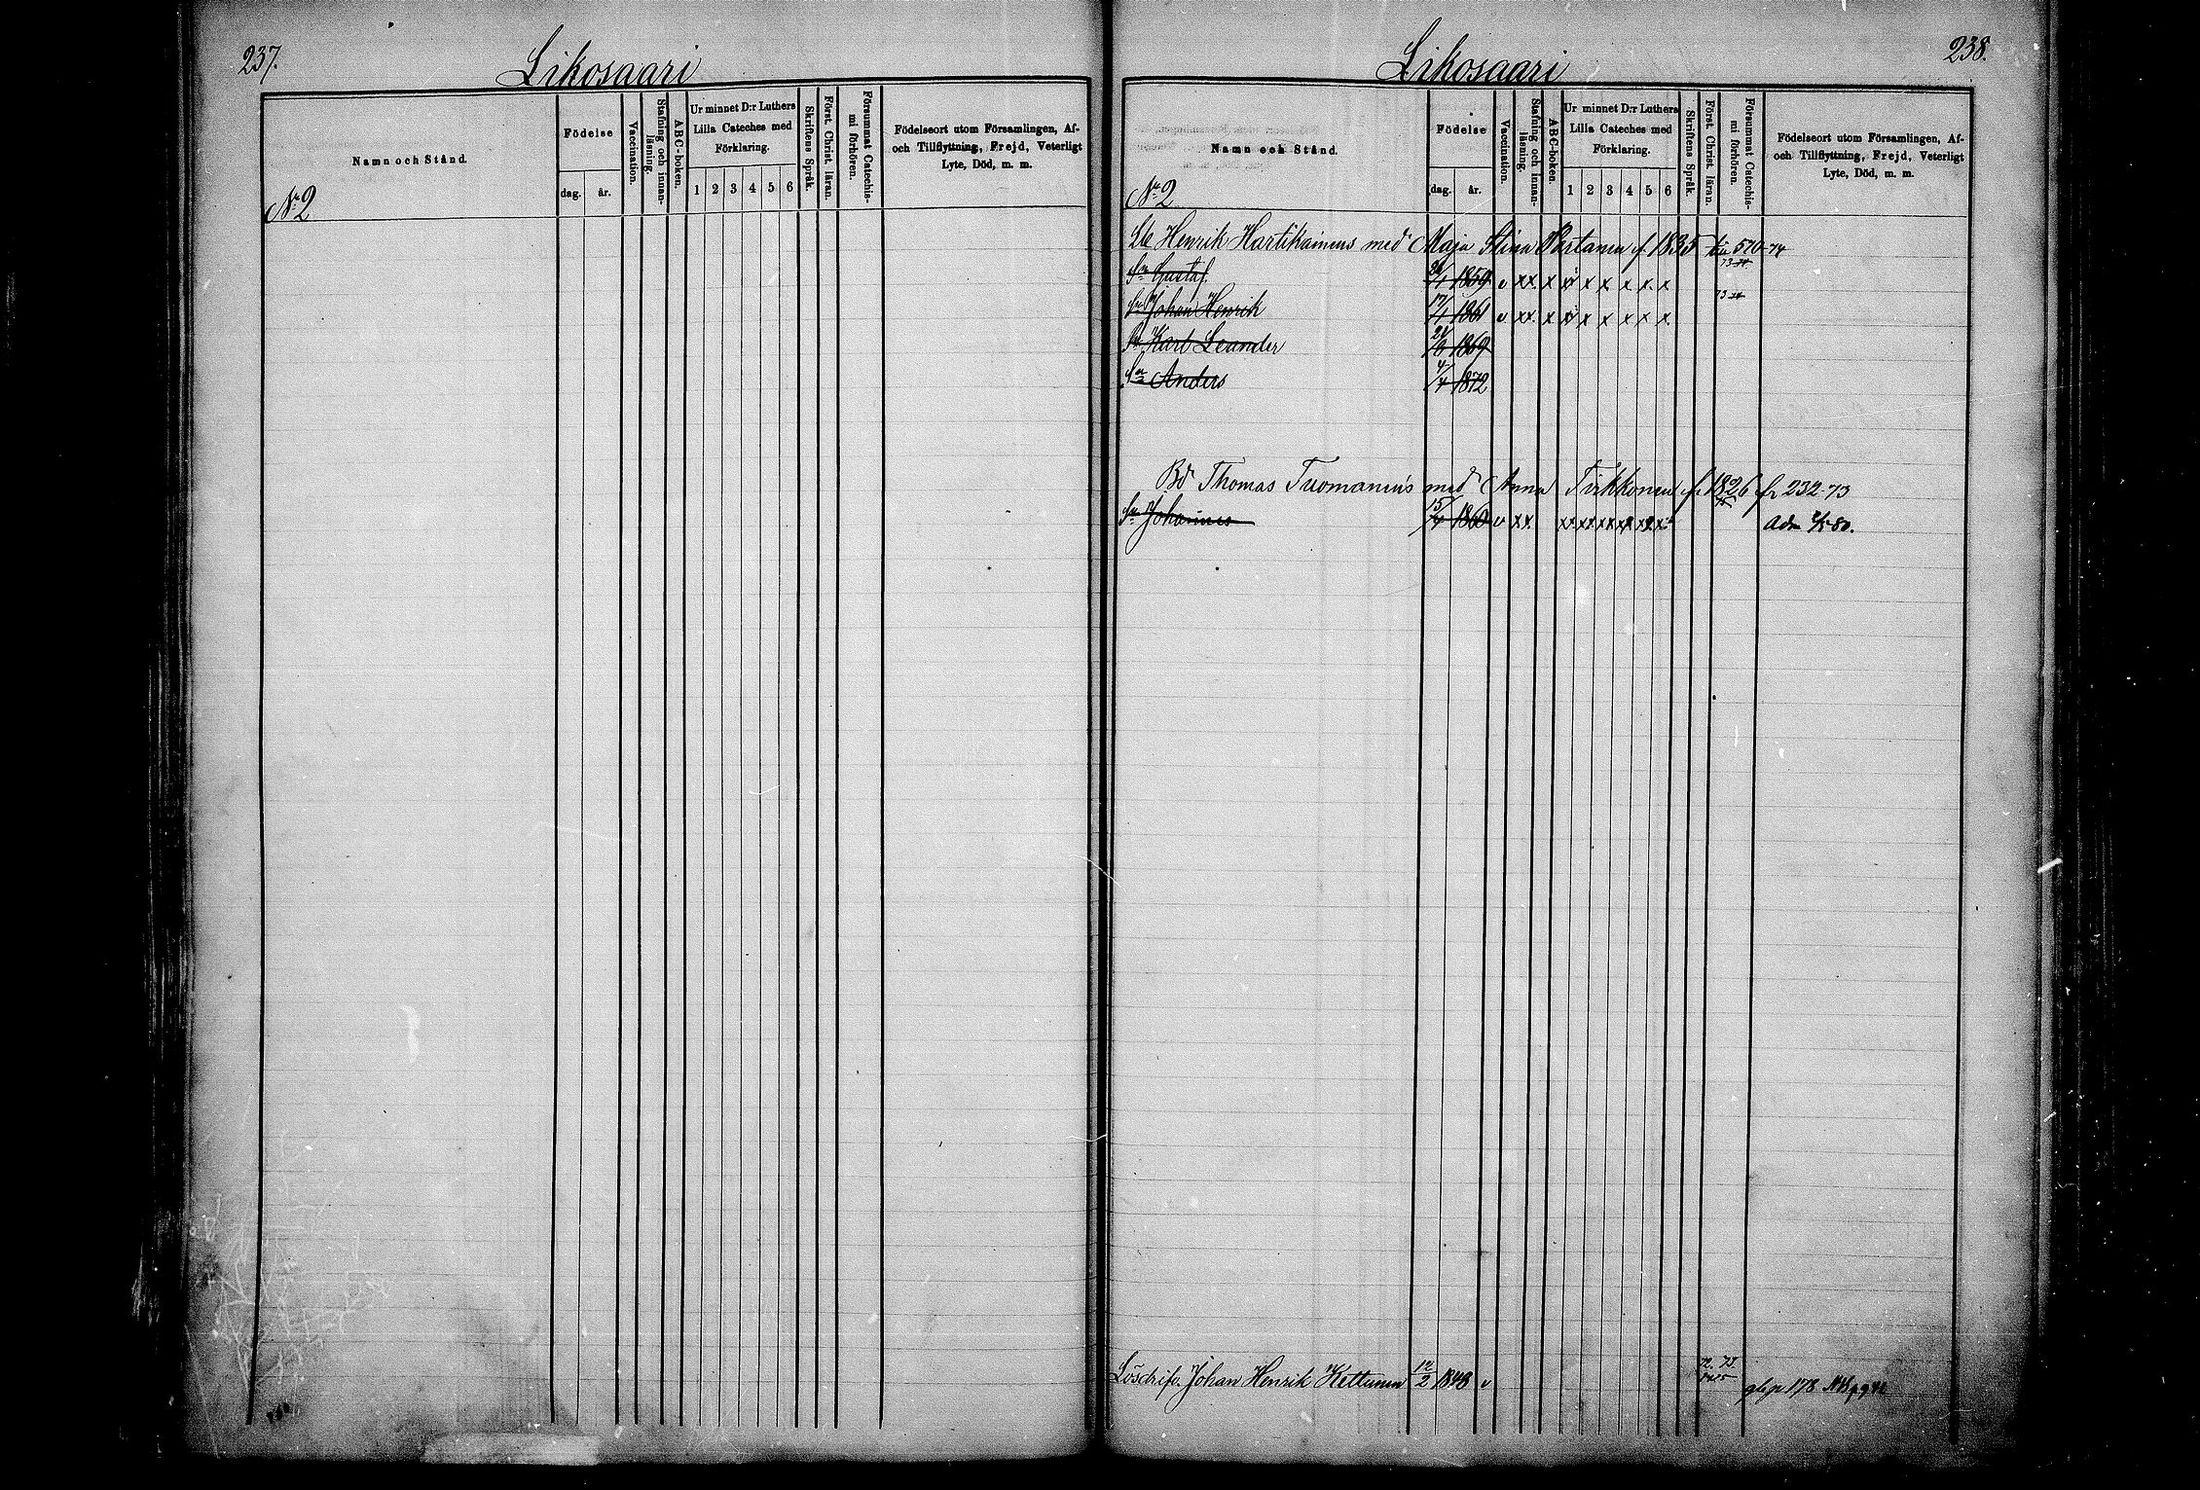 237.
Likosaari
Namn och Stånd.
Födelse
dag. år.
Vaccination.
Stafning och innan-läsning.
ABC-boken.
Ur minnet D:r Luthers
Lilla Cateches med
Förklaring.
1 2 3 4 5 6
Skriftens Språk.
Först. Christ. läran.
Försummat Catechis-mi förhören.
Födelseort utom Församlingen, Af-
och Tillflyttning, Frejd, Veterligt
Lyte, Död, m. m.
No 2
238.
Likosaari
Namn och Stånd.
Födelse
dag. år.
Vaccination.
Stafning och innan-läsning.
ABC-boken.
Ur minnet D:r Luthers
Lilla Cateches med
Förklaring.
1 2 3 4 5 6
Skriftens Språk.
Först. Christ. läran.
Försummat Catechis-mi förhören.
Födelseort utom Församlingen, Af-
och Tillflyttning, Frejd, Veterligt
Lyte, Död, m. m.
No 2
Henrik Hartikainens med Maja Stina Partanen f. 1835 570-74
Sn Gustaf 1859 v xx x x x x x x x
Sn Johan Henrik 17/1 1861 v xx x x x x x x x
Sn Karl Leander 1869
Sn Anders 4/4 1872
Bd Thomas Tuomanens med Anna Tirkkonen f. 1826 fr 232-73
Sn Johannes 15/4 1860 v xx xx xx xx xx xx Adm 80.
Lösdrif. Johan Henrik Kettunen 12/2 1848 v 72. 73. p 178